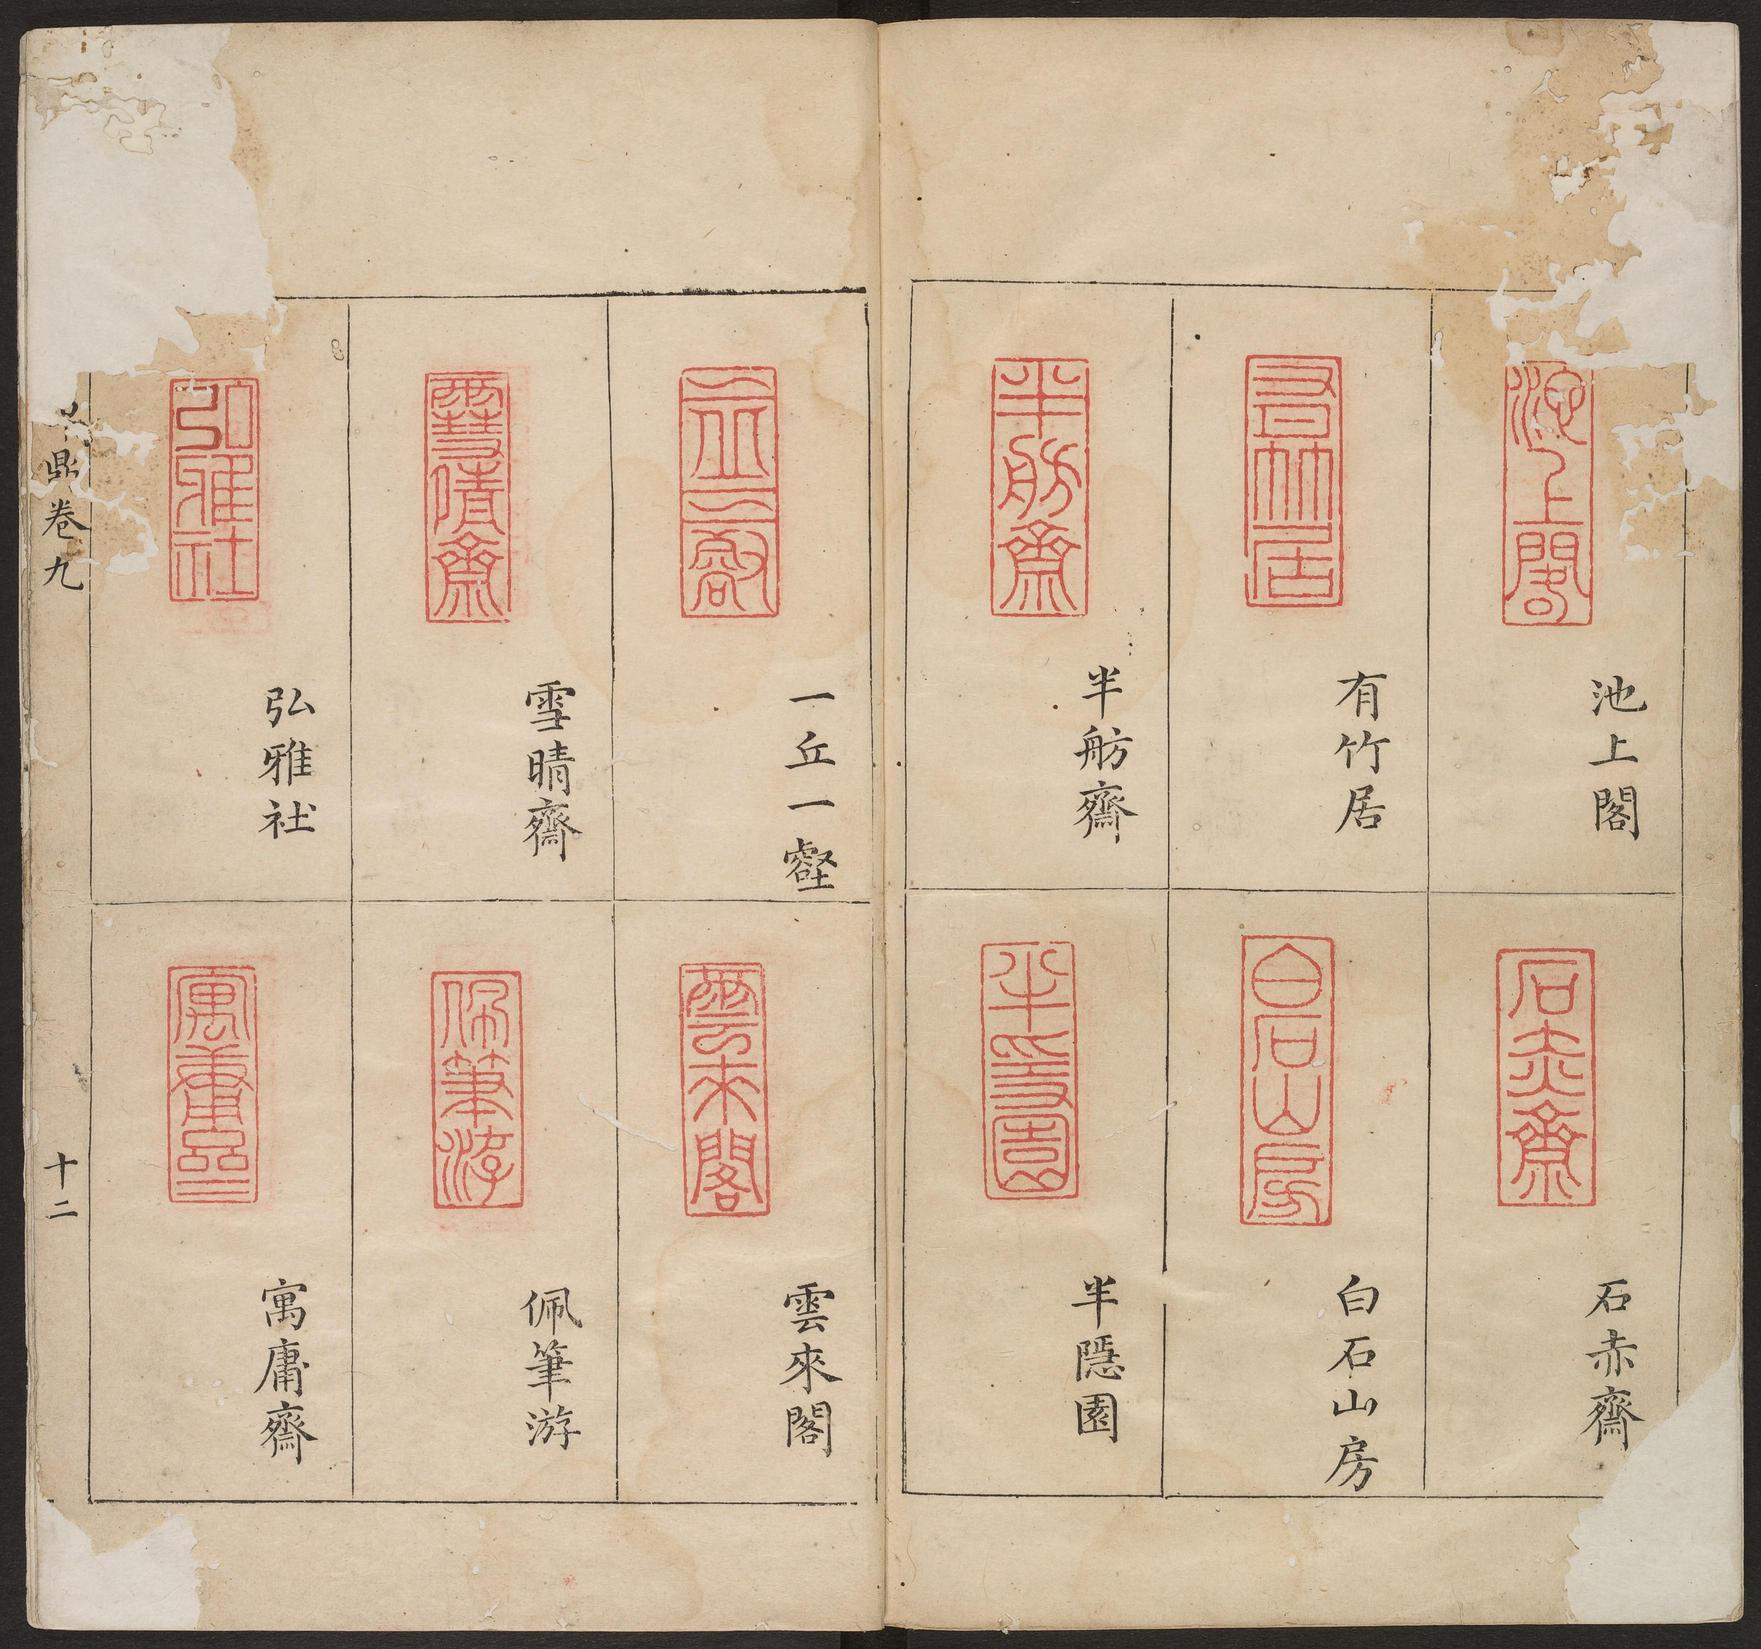 池上閣
石赤齋
有竹居
白石山房
半舫齋
半隱園
一丘一壑
雲來閣
雪晴齋
佩筆游
弘雅社
寓庸齋
鼎卷九
十二